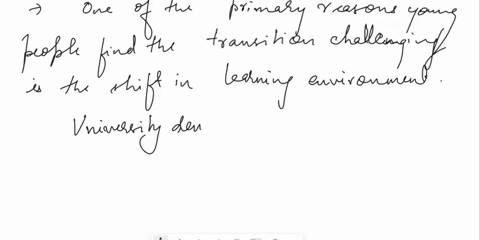 → One of the primary reasons young
people find the transition challenging
is the shift in learning environment.
University den